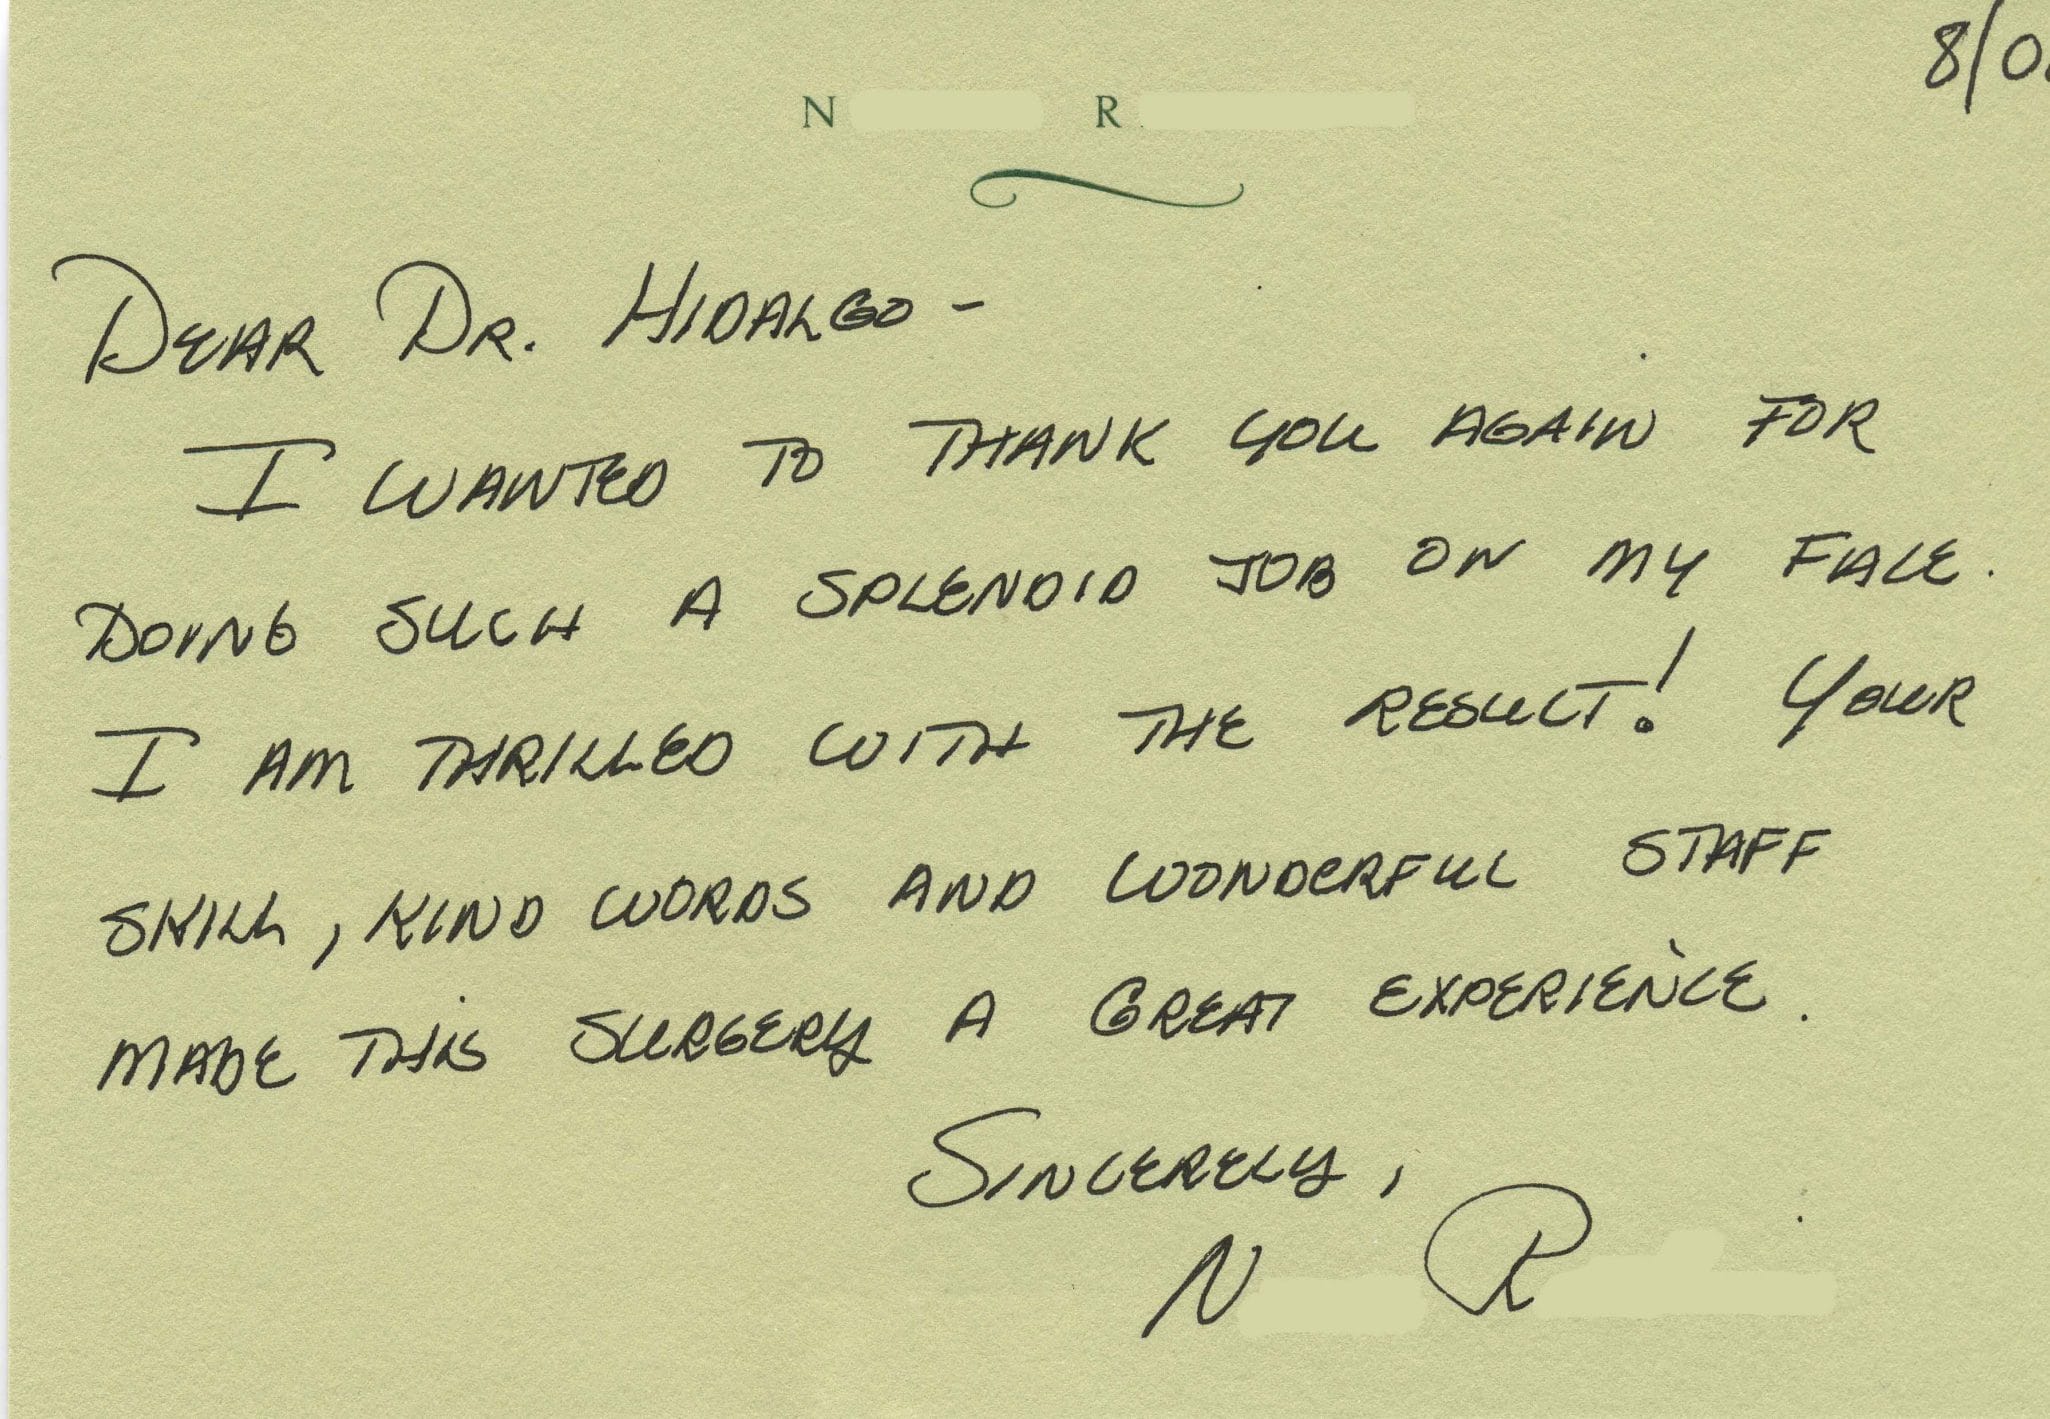 8/0
N R
DEAR DR. HIDALGO -
I WANTED TO THANK YOU AGAIN FOR
DOING SUCH A SPLENDID JOB ON MY FACE.
I AM THRILLED WITH THE RESULT! YOUR
SKILL, KIND WORDS AND WONDERFUL STAFF
MADE THIS SURGERY A GREAT EXPERIENCE.
SINCERELY,
N R